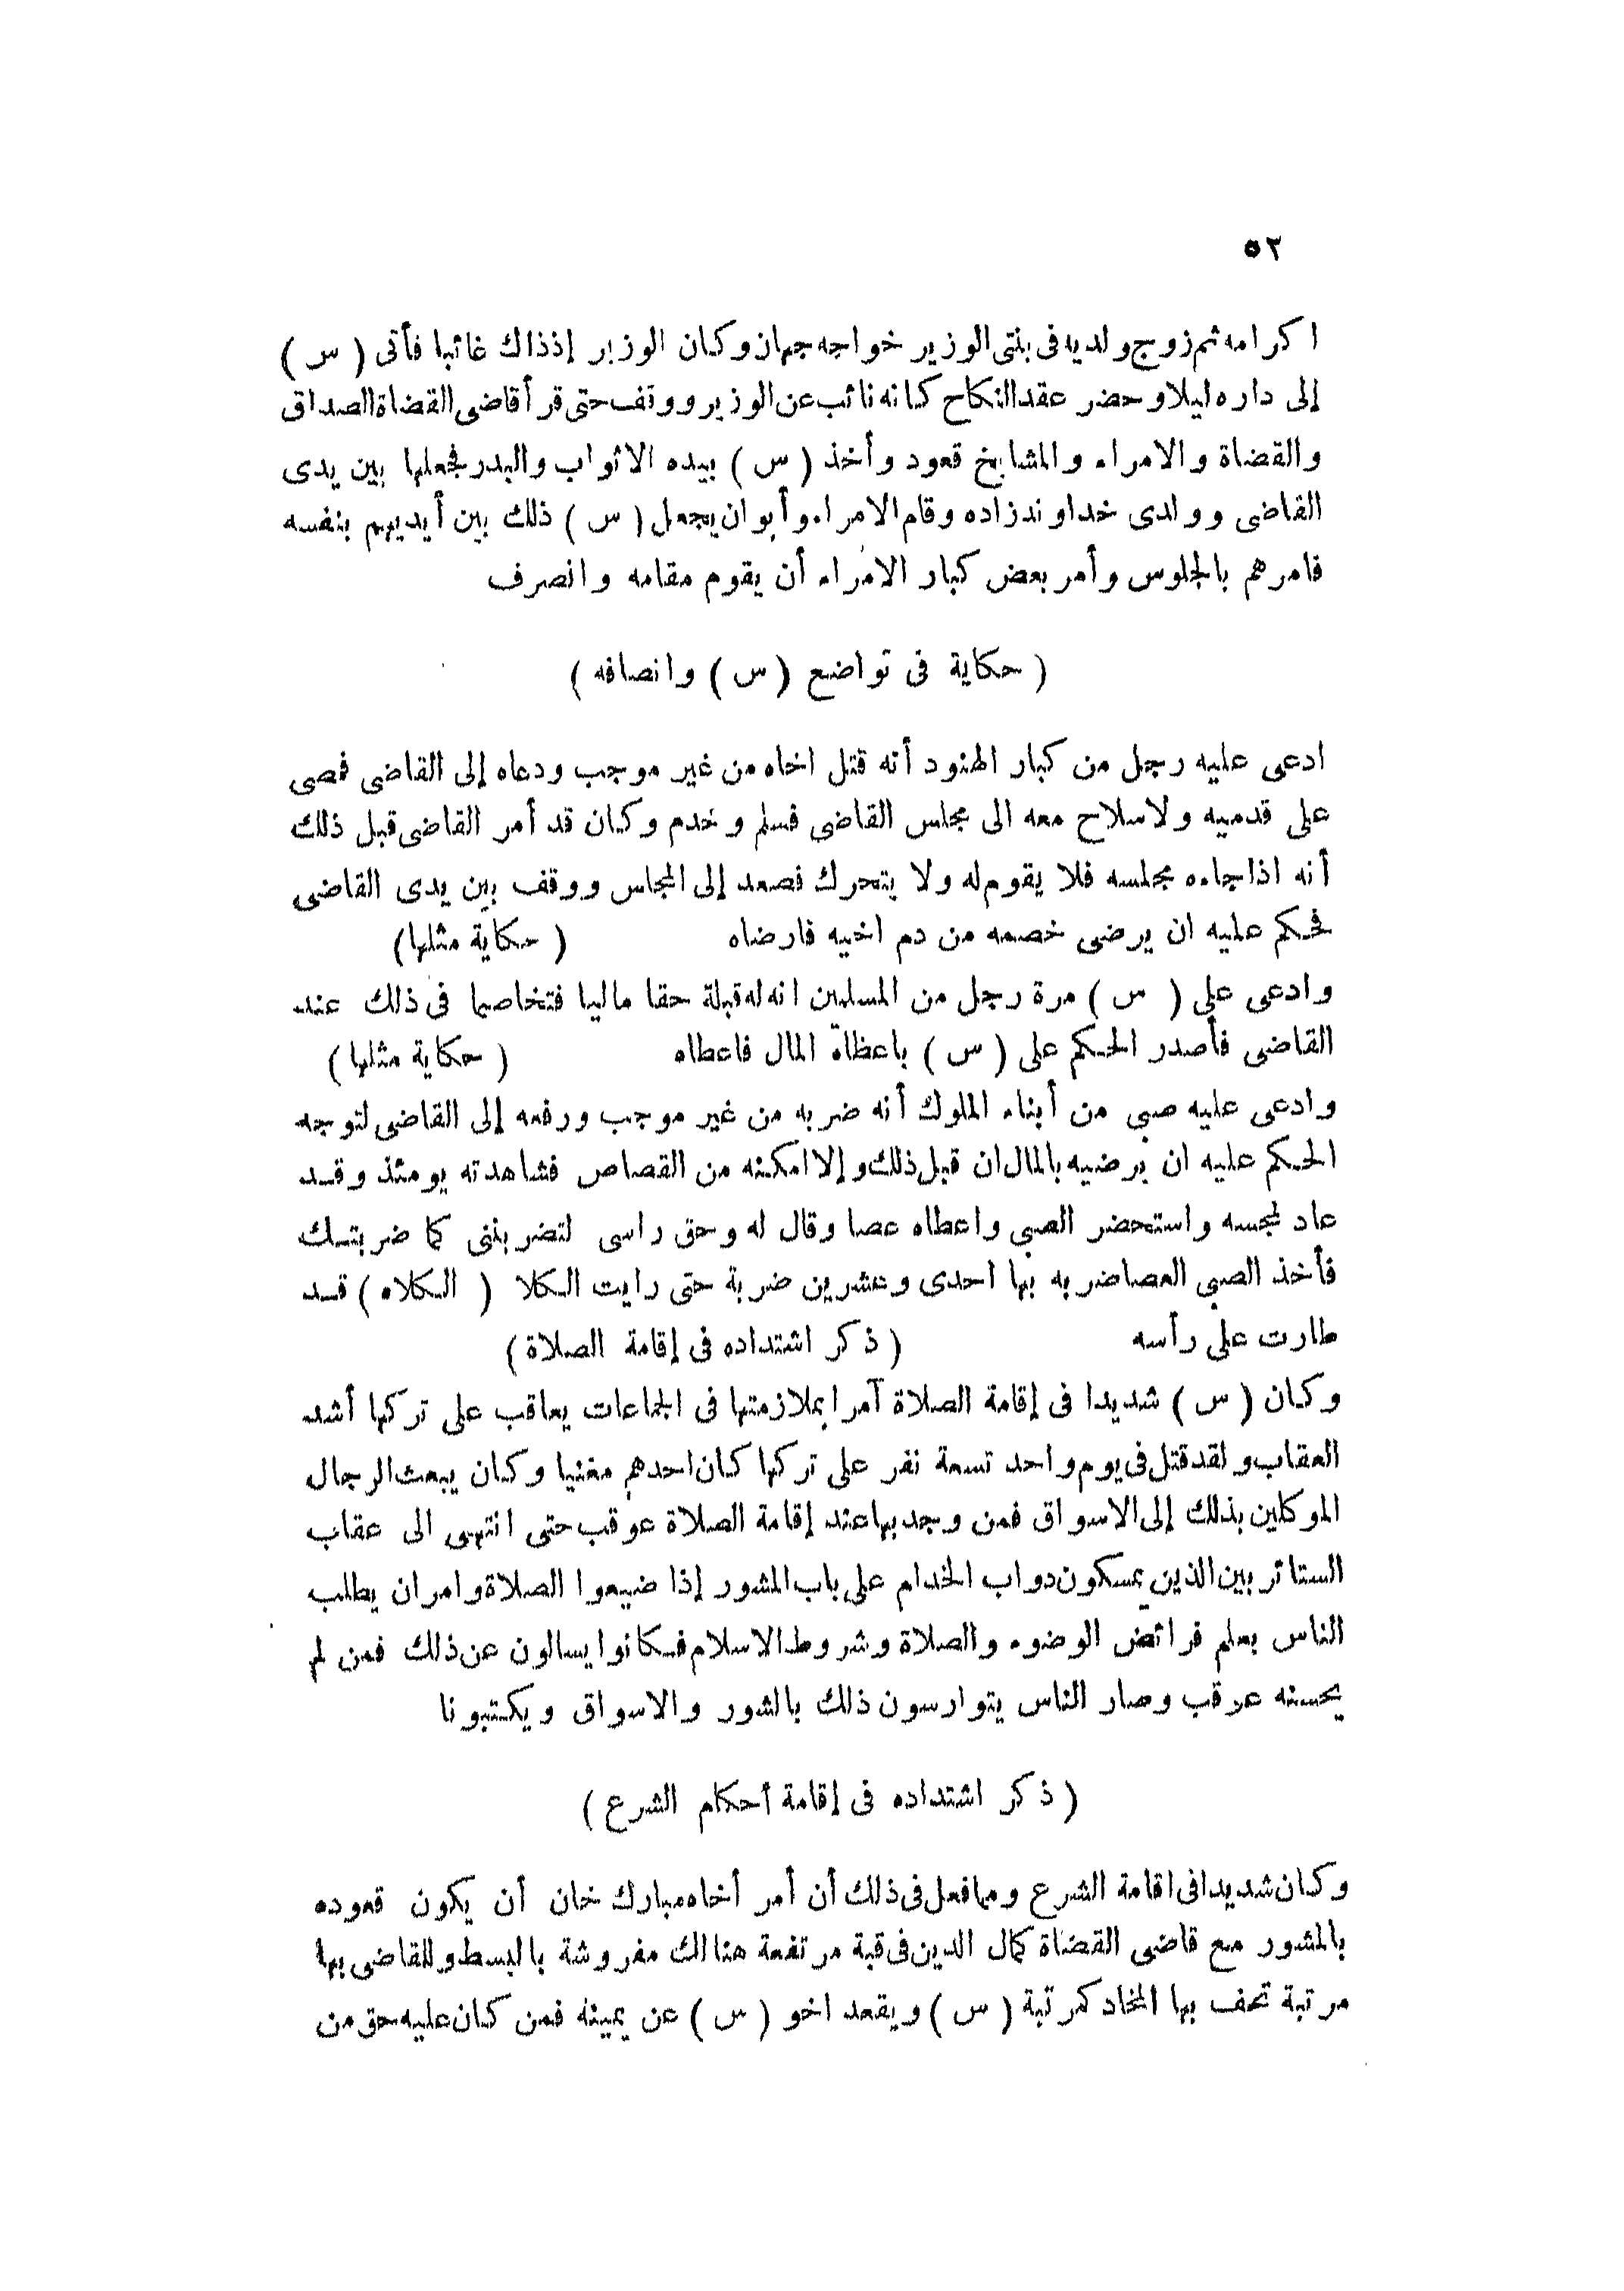 ٥٢
اكرامه ثم زوج ولديه فى بنتى الوزير خواجه جهان وكان الوزير إذ ذاك غائبا فأتى ( س )
إلى داره ليلا وحضر عقد النكاح كانه نائب عن الوزير ووقف حتى قرأ قاضى القضاة الصداق
والقضاة والامراء والمشايخ قعود وأخذ ( س ) بيده الاثواب والبدر فجعلها بين يدى
القاضى وولدى خداوند زاده وقام الامراء وأبوا ان يجعل ( س ) ذلك بين أيديهم بنفسه
فامرهم بالجلوس وأمر بعض كبار الامراء أن يقوم مقامه وانصرف
( حكاية فى تواضع ( س ) وانصافه )
ادعى عليه رجل من كبار الهنود أنه قتل اخاه من غير موجب ودعاه إلى القاضى فمضى
على قدميه ولا سلاح معه الى مجلس القاضى فسلم وخدم وكان قد أمر القاضى قبل ذلك
أنه اذا جاءه مجلسه فلا يقوم له ولا يتحرك فصعد إلى المجلس ووقف بين يدى القاضى
فحكم عليه ان يرضى خصمه من دم اخيه فارضاه ( حكاية مثلها )
وادعى على ( س ) مرة رجل من المسلمين انه له قبلة حقا ماليا فتخاصما فى ذلك عند
القاضى فأصدر الحكم على ( س ) باعظاة المال فاعطاه ( حكاية مثلها )
وادعى عليه صبى من أبناء الملوك أنه ضربه من غير موجب ورفعه إلى القاضى لتوجه
الحكم عليه ان يرضيه بالمال ان قبل ذلك وإلا امكنه من القصاص فشاهدته يومئذ وقد
عاد لمجسه واستحضر الصبى واعطاه عصا وقال له وحق راسى لتضربننى كما ضربتك
فأخذ الصبى العصا ضربه بها احدى وعشرين ضربة حتى رايت الكلا ( الكلاه ) قد
طارت على رأسه ( ذكر اشتداده فى إقامة الصلاة )
وكان ( س ) شديدا فى إقامة الصلاة آمرا بملازمتها فى الجماعات يعاقب على تركها أشد
العقاب ولقد قتل فى يوم واحد تسعة نفر على تركها كان احدهم مغنيا وكان يبعث الرجال
الموكلين بذلك إلى الاسواق فمن وجد بها عند إقامة الصلاة عوقب حتى انتهى الى عقاب
الستائريين الذين يمسكون دواب الخدام على باب المشور إذا ضيعوا الصلاة وامر ان يطلب
الناس بعلم فرائض الوضوء والصلاة وشروط الاسلام فكانوا يسالون عن ذلك فمن لم
يحسنه عوقب وصار الناس يتوارسون ذلك بالشور والاسواق ويكتبونا
( ذكر اشتداده فى إقامة أحكام الشرع )
وكان شديدا فى اقامة الشرع ومما فعل فى ذلك أن أمر أخاه مبارك خان أن يكون قعوده
بالمشور مع قاضى القضاة كمال الدين فى قبة مرتفعة هنالك مفروشة بالبسط وللقاضى بها
مرتبة تحف بها المخاد كمرتبة ( س ) ويقعد اخو ( س ) عن يمينه فمن كان عليه حق من